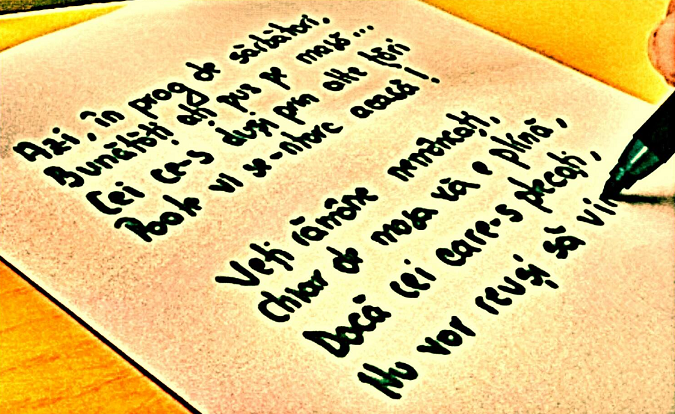 Azi, în prag de sărbători,
Bunătăți ați pus pe masă...
Cei ce-s duși prin alte țări
Poate vi se-ntorc acasă!
Veți rămâne nemâncați,
Chiar de masa vă e plină,
Dacă cei care-s plecați,
Nu vor reuși să vin